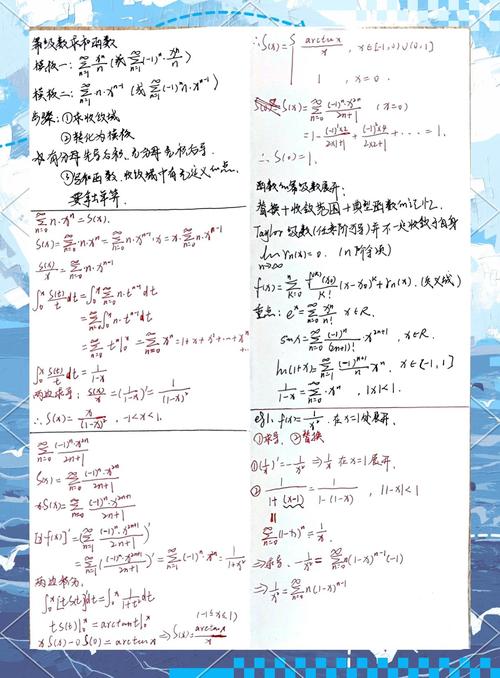 幂级数求和函数
模板一：∑_{n=1}^{∞} x^n/n (或 ∑_{n=1}^{∞} (-1)^n · x^n/n)
模板二：∑_{n=1}^{∞} n·x^{n-1} (或 ∑_{n=1}^{∞} (-1)^n n x^{n-1})
步骤：①求收敛域
②转化为模板
有分母先导后积，无分母先积后导.
③写和函数，收敛域中有无定义的点，
要拿出单算.
∑_{n=0}^{∞} n·x^n = S(x).
S(x) = ∑_{n=0}^{∞} n·x^n = ∑_{n=0}^{∞} n·x^{n-1}·x = x·∑_{n=0}^{∞} n·x^{n-1}
S(x)/x = ∑_{n=0}^{∞} n·x^{n-1}
∫_0^x S(t)/t dt = ∫_0^x ∑_{n=0}^{∞} n·t^{n-1} dt
= ∑_{n=0}^{∞} ∫_0^x n·t^{n-1} dt
= ∑_{n=0}^{∞} t^n |_0^x = ∑_{n=0}^{∞} x^n = 1+x+x^2+…+x^n
+…
∫_0^x S(t)/t dt = 1/(1-x)
两边求导：S(x)/x = (1/(1-x))' = 1/(1-x)^2
∴ S(x) = x/(1-x)^2, -1<x<1.
∑_{n=0}^{∞} (-1)^n·x^{2n}/(2n+1)
S(x) = ∑_{n=0}^{∞} (-1)^n·x^{2n}/(2n+1)
xS(x) = ∑_{n=0}^{∞} (-1)^n·x^{2n+1}/(2n+1)
= (∑_{n=0}^{∞} (-1)^n·x^{2n+1}/(2n+1))'
= ∑_{n=0}^{∞} ((-1)^n·x^{2n+1}/(2n+1))' = ∑_{n=0}^{∞} (-1)^n·x^{2n} = 1/(1+x^2)
两边积分,
∫_0^x [tS(t)]'dt = ∫_0^x 1/(1+t^2) dt
tS(t)|_0^x = arctant|_0^x
(-1≤x≤1)
xS(x)-0S(0) = arctanx ⇒ S(x) = arctanx/x
∴ S(x) = { arctanx/x, x∈[-1,0)∪(0,1]
1, x=0.
S(x) = ∑_{n=0}^{∞} (-1)^n·x^{2n}/(2n+1) (x=0)
+ … = 1.
∴ S(0) = 1.
函数的幂级数展开：
替换+收敛范围+典型函数的记忆.
Taylor级数(任意阶可导)并不一定收敛于自身
lim_{n→∞} r_n(x) = 0. (n阶余项)
f(x) = ∑_{k=0}^{n} f^{(k)}(x_0)/k! (x-x_0)^k + r_n(x).
重点：e^x = ∑_{n=0}^{∞} x^n/n! x∈R.
sinx = ∑_{n=0}^{∞} (-1)^n/(2n+1)! · x^{2n+1}, x∈R.
ln(1+x) = ∑_{n=1}^{∞} (-1)^{n+1}/n x^n, x∈(-1,1]
1/(1-x) = ∑_{n=0}^{∞} x^n, |x|<1.
eg1. f(x) = 1/x^2. 在x=1处展开.
①求导. ②替换
①(1/x)' = -1/x^2 ⇒ 1/x 在x=1展开.
② 1/(1+(x-1)) = 1/(1-(1-x)), |1-x|<1
∑_{n=0}^{∞} (1-x)^n = 1/x.
⇒求导. -1/x^2 = ∑_{n=0}^{∞} n(1-x)^{n-1}(-1)
⇒ 1/x^2 = ∑_{n=0}^{∞} n(1-x)^{n-1}